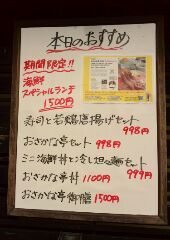 本日のおすすめ
期間限定!!
海鮮
スペシャルランチ
1500円
寿司と若鶏唐揚げセット
998円
おさかな亭セット 998円
ミニ海鮮丼と冷し担々麺セット
999円
おさかな亭丼 1100円
おさかな亭御膳 1500円